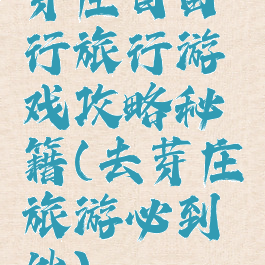 芽庄自由
行旅行游
戏攻略秘
籍(去芽庄
旅游必到